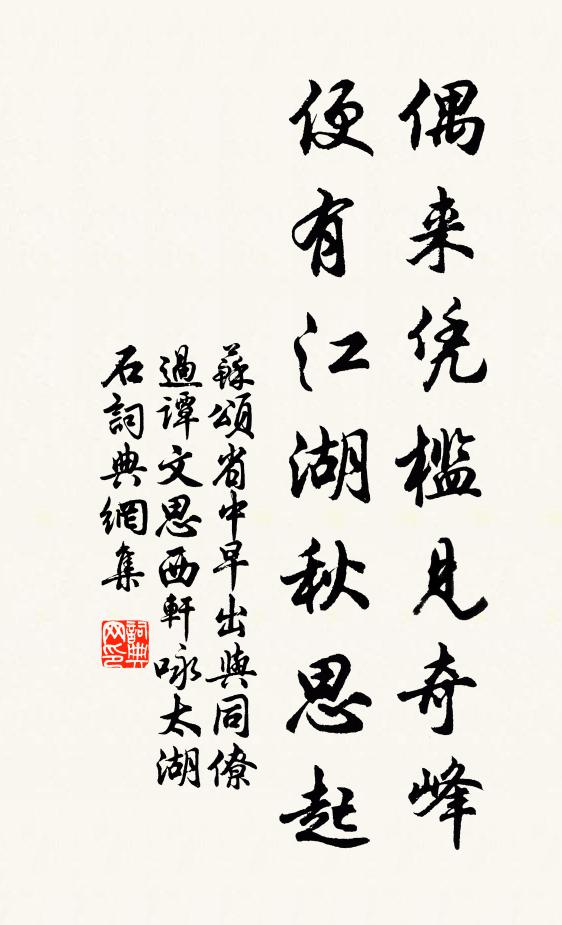 偶来凭檻見奇峰
便有江湖秋思起
蘇頌省中早出與同僚
過譚文思西軒咏太湖
石詞典網集
詞典
网印